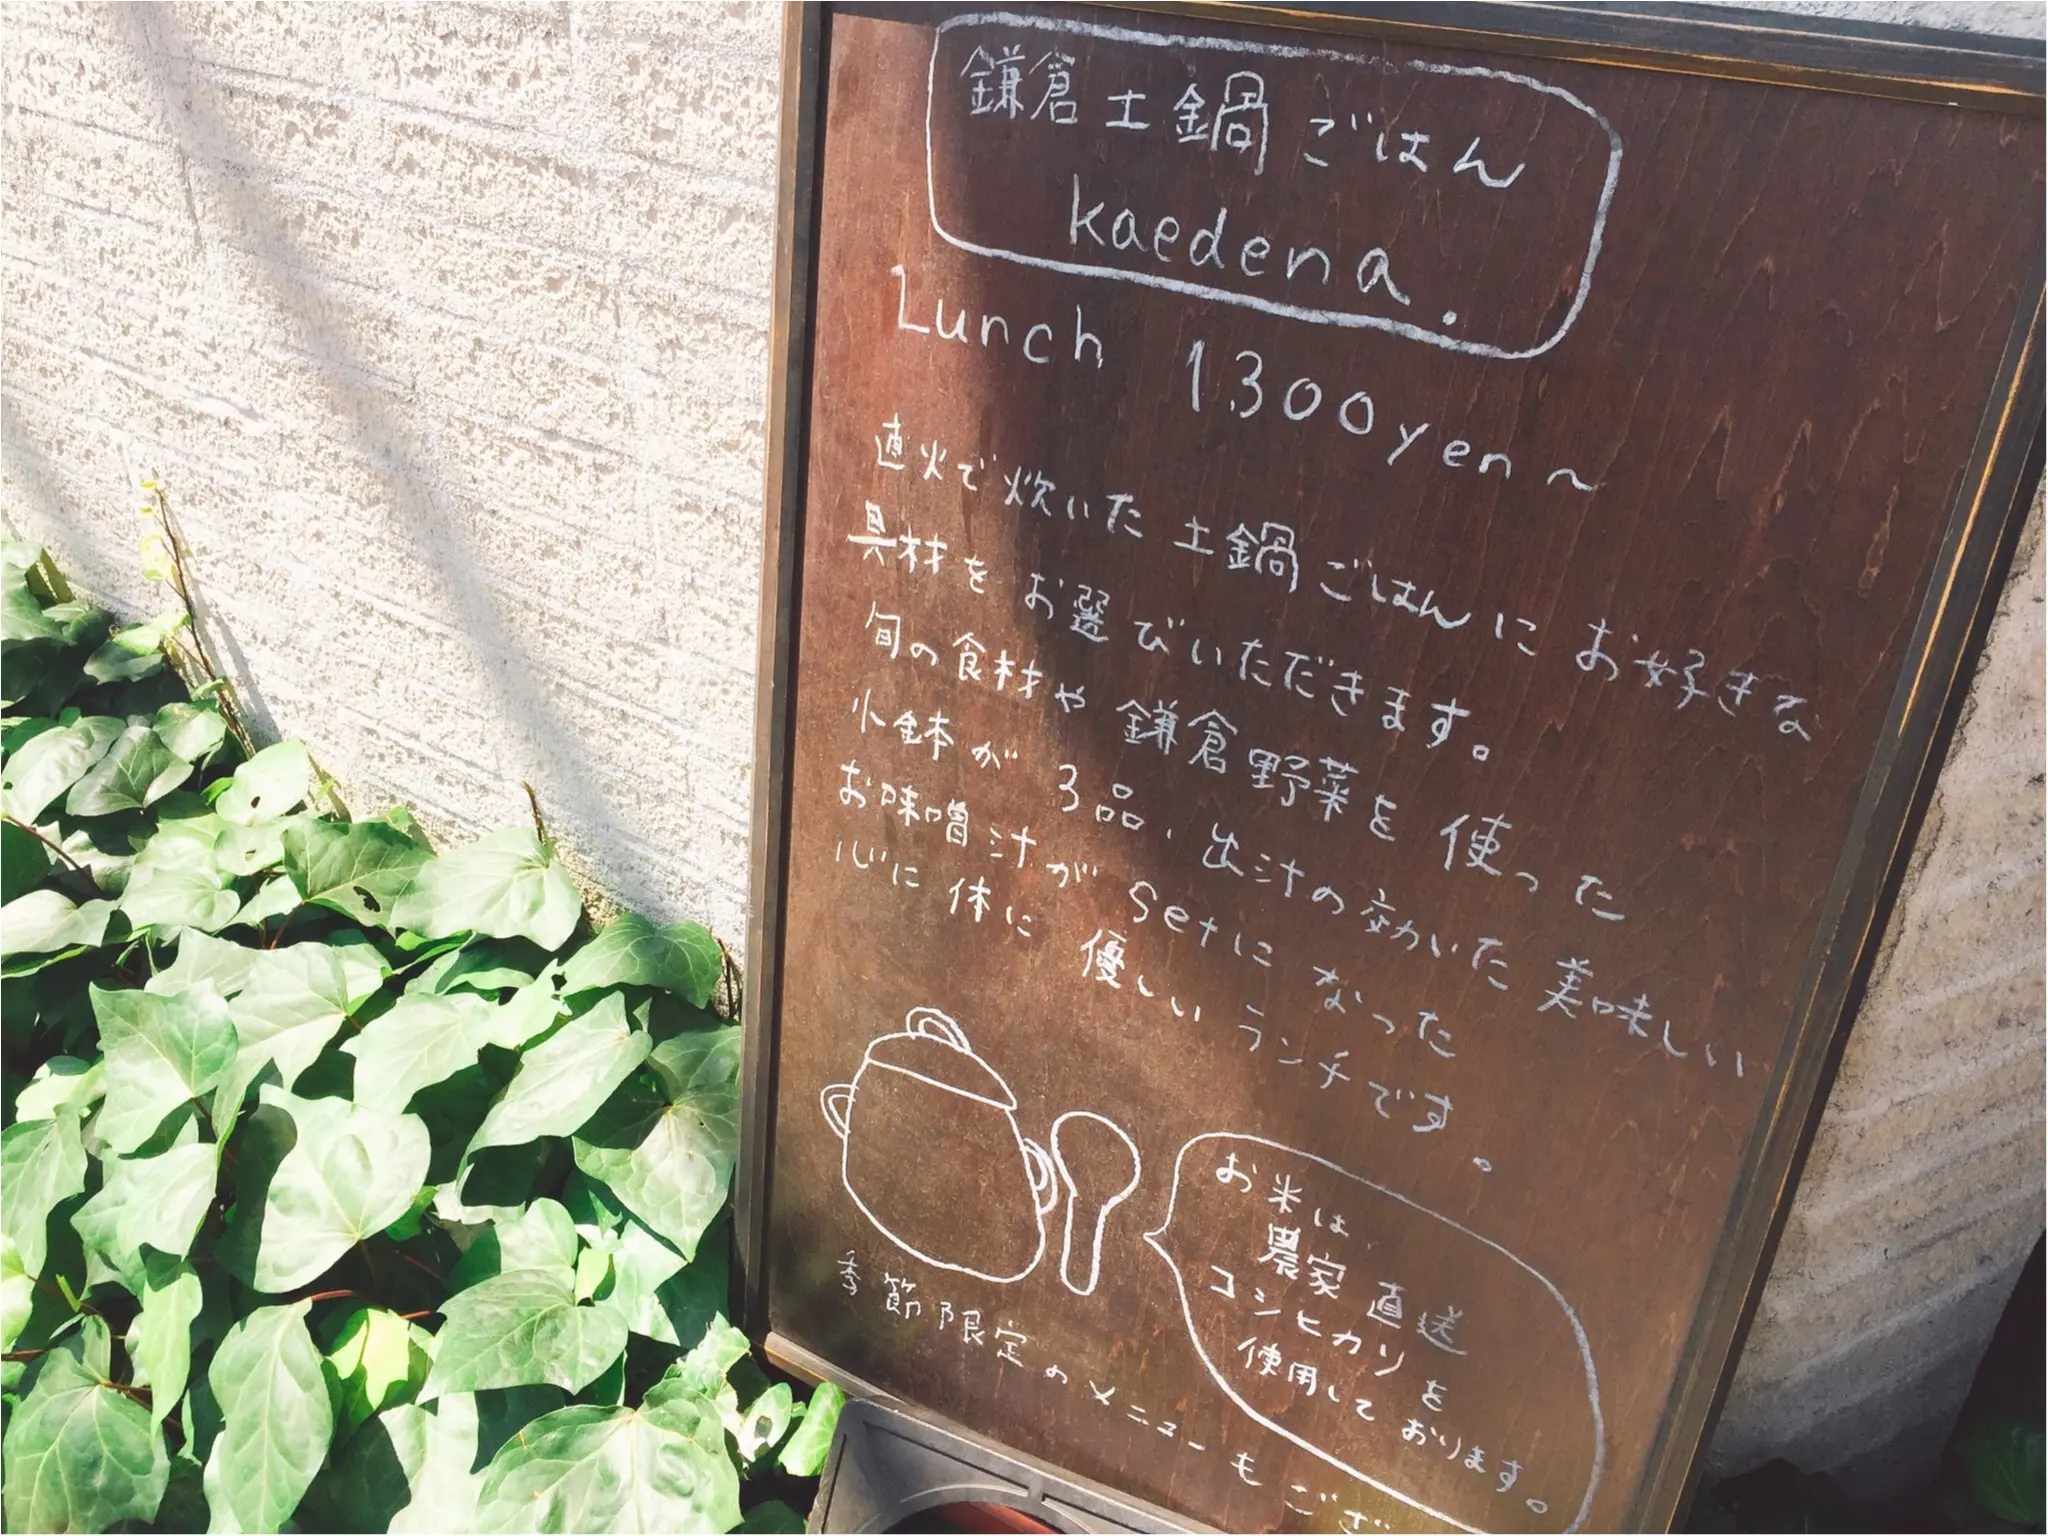 鎌倉土鍋ごはん
kaedena.
Lunch 1,300yen~
直火で炊いた土鍋ごはんにお好きな
具材をお選びいただきます。
旬の食材や鎌倉野菜を使った
小鉢が3品、出汁の効いた美味しい
お味噌汁がsetになった
心に体に優しいランチです。
お米は、
農家直送
コシヒカリを
使用しております。
季節限定のメニューもござ